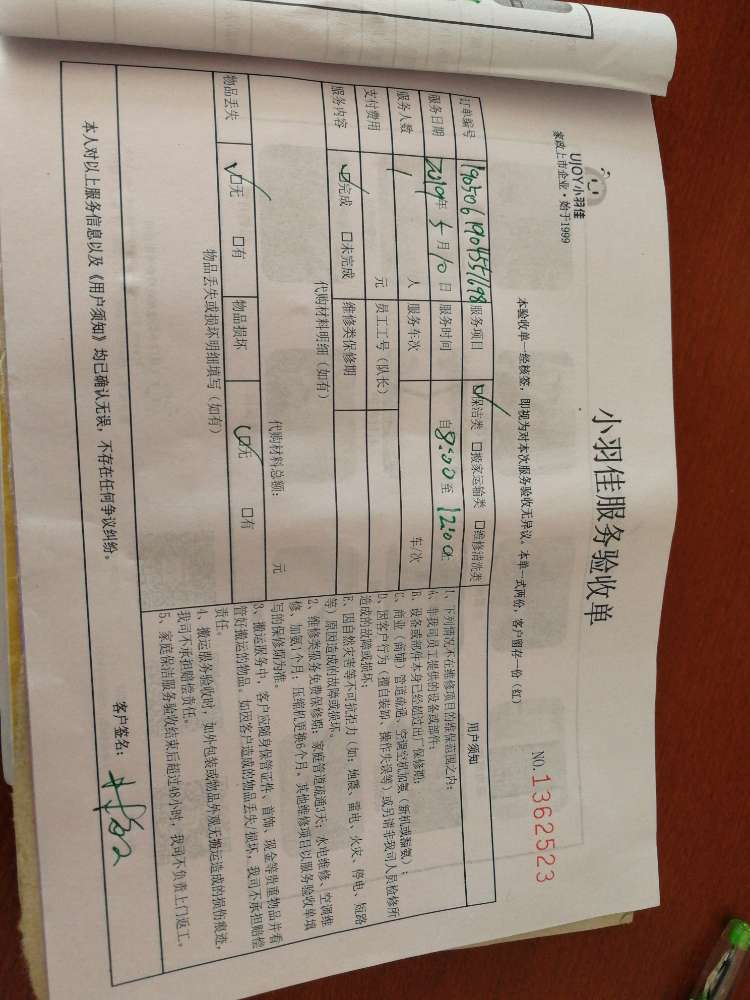 UJOY小羽佳
家政上市企业·始于1999
小羽佳服务验收单
本验收单一经核签,即视为对本次服务验收无异议。本单一式两份,客户留存一份(红)
NO.1362523
订单编号 1905061904557698 服务项目 ☑保洁类 □搬家运输类 □维修清洗类
服务日期 2019年5月10日 服务时间 自8:00至12:00
服务人数 1人 服务车次 车/次
支付费用 元 员工工号(队长)
服务内容 ☑完成 □未完成 维修类保修期
代购材料明细(如有)
代购材料总额: 元
物品丢失 ☑无 □有 物品损坏 ☑无 □有
物品丢失或损坏明细填写(如有)
用户须知
1、下列情况不在维修项目的维保范围之内:
A、非我司员工提供的设备或部件;
B、设备或部件本身已经超过出厂保修期;
C、商业(商铺)管道疏通、空调空机加氨(新机或漏氨);
D、因客户行为(擅自装卸、操作失误等)或另请非我司人员检修所
造成的故障或损坏;
E、因自然灾害等不可抗拒力(如:地震、雷电、火灾、停电、短路
等)原因造成的故障或损坏。
2、维修类服务免费保修期:家庭管道疏通3天;水电维修、空调维
修、加氨1个月;压缩机更换6个月。其他维修项目以服务验收单填
写的保修期为准。
3、搬运服务中,客户应随身保管证件、首饰、现金等贵重物品并看
管好搬运的物品。如因客户造成的物品丢失/损坏,我司不承担赔偿
责任。
4、搬运服务验收时,如外包装或物品外观无搬运造成的损伤痕迹,
我司不承担赔偿责任。
5、家庭保洁服务验收结束后超过48小时,我司不负责上门返工。
本人对以上服务信息以及《用户须知》均已确认无误,不存在任何争议纠纷。
客户签名: